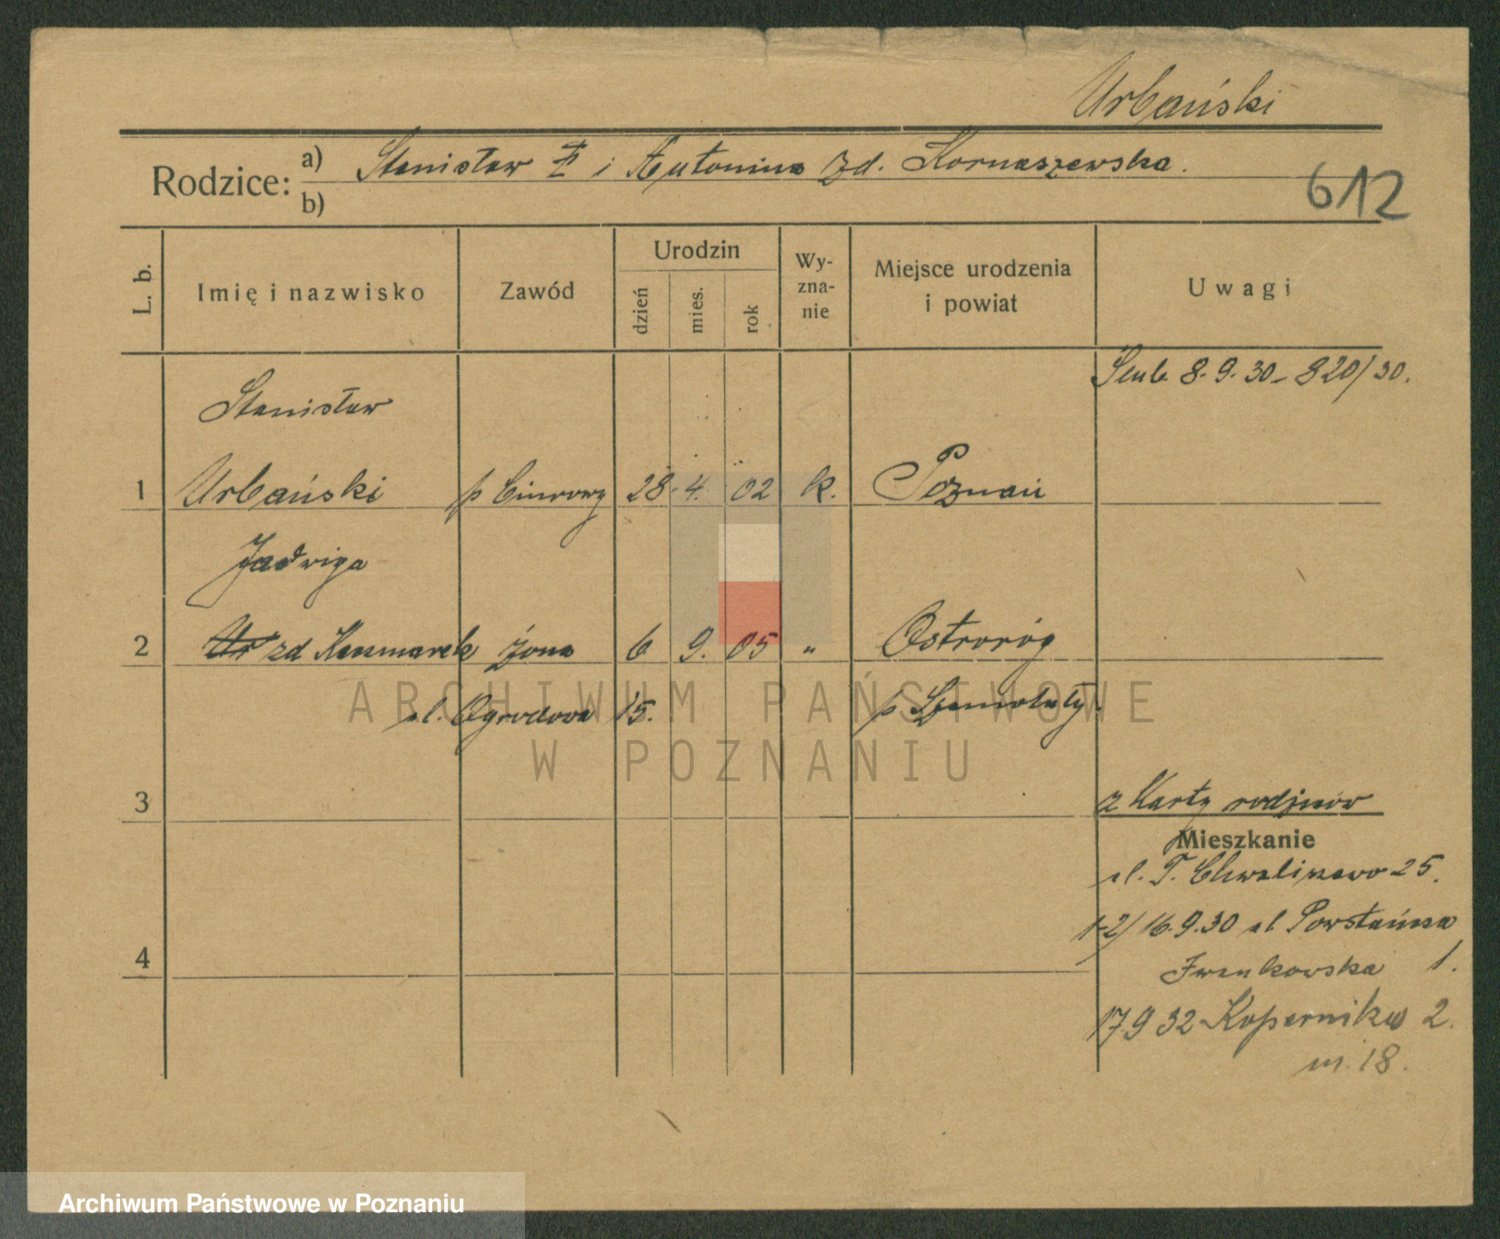 Urbański
Rodzice: a) Stanisław i Antonina zd. Kornaszewska.
b)
612
L. b.
Imię i nazwisko
Zawód
Urodzin
dzień
mies.
rok
Wy-
zna-
nie
Miejsce urodzenia
i powiat
Uwagi
Ślub 8. 9. 30 - 820/30.
Stanisław
1 Urbański 28. 4. 02 k. Poznań
Jadwiga
2 Ur zd Kaczmarek żona 6 9. 05 " Ostroróg
ul. Ogrodowa 15. p Szamotuły.
3 z Karty rodziców
Mieszkanie
ul. T. Chwaliszewo 25.
1-2/ 16.9.30 ul Powstańcza
4 1.
17 9 32 Kopernika 2.
m. 18.
ARCHIWUM PAŃSTWOWE
W POZNANIU
Archiwum Państwowe w Poznaniu